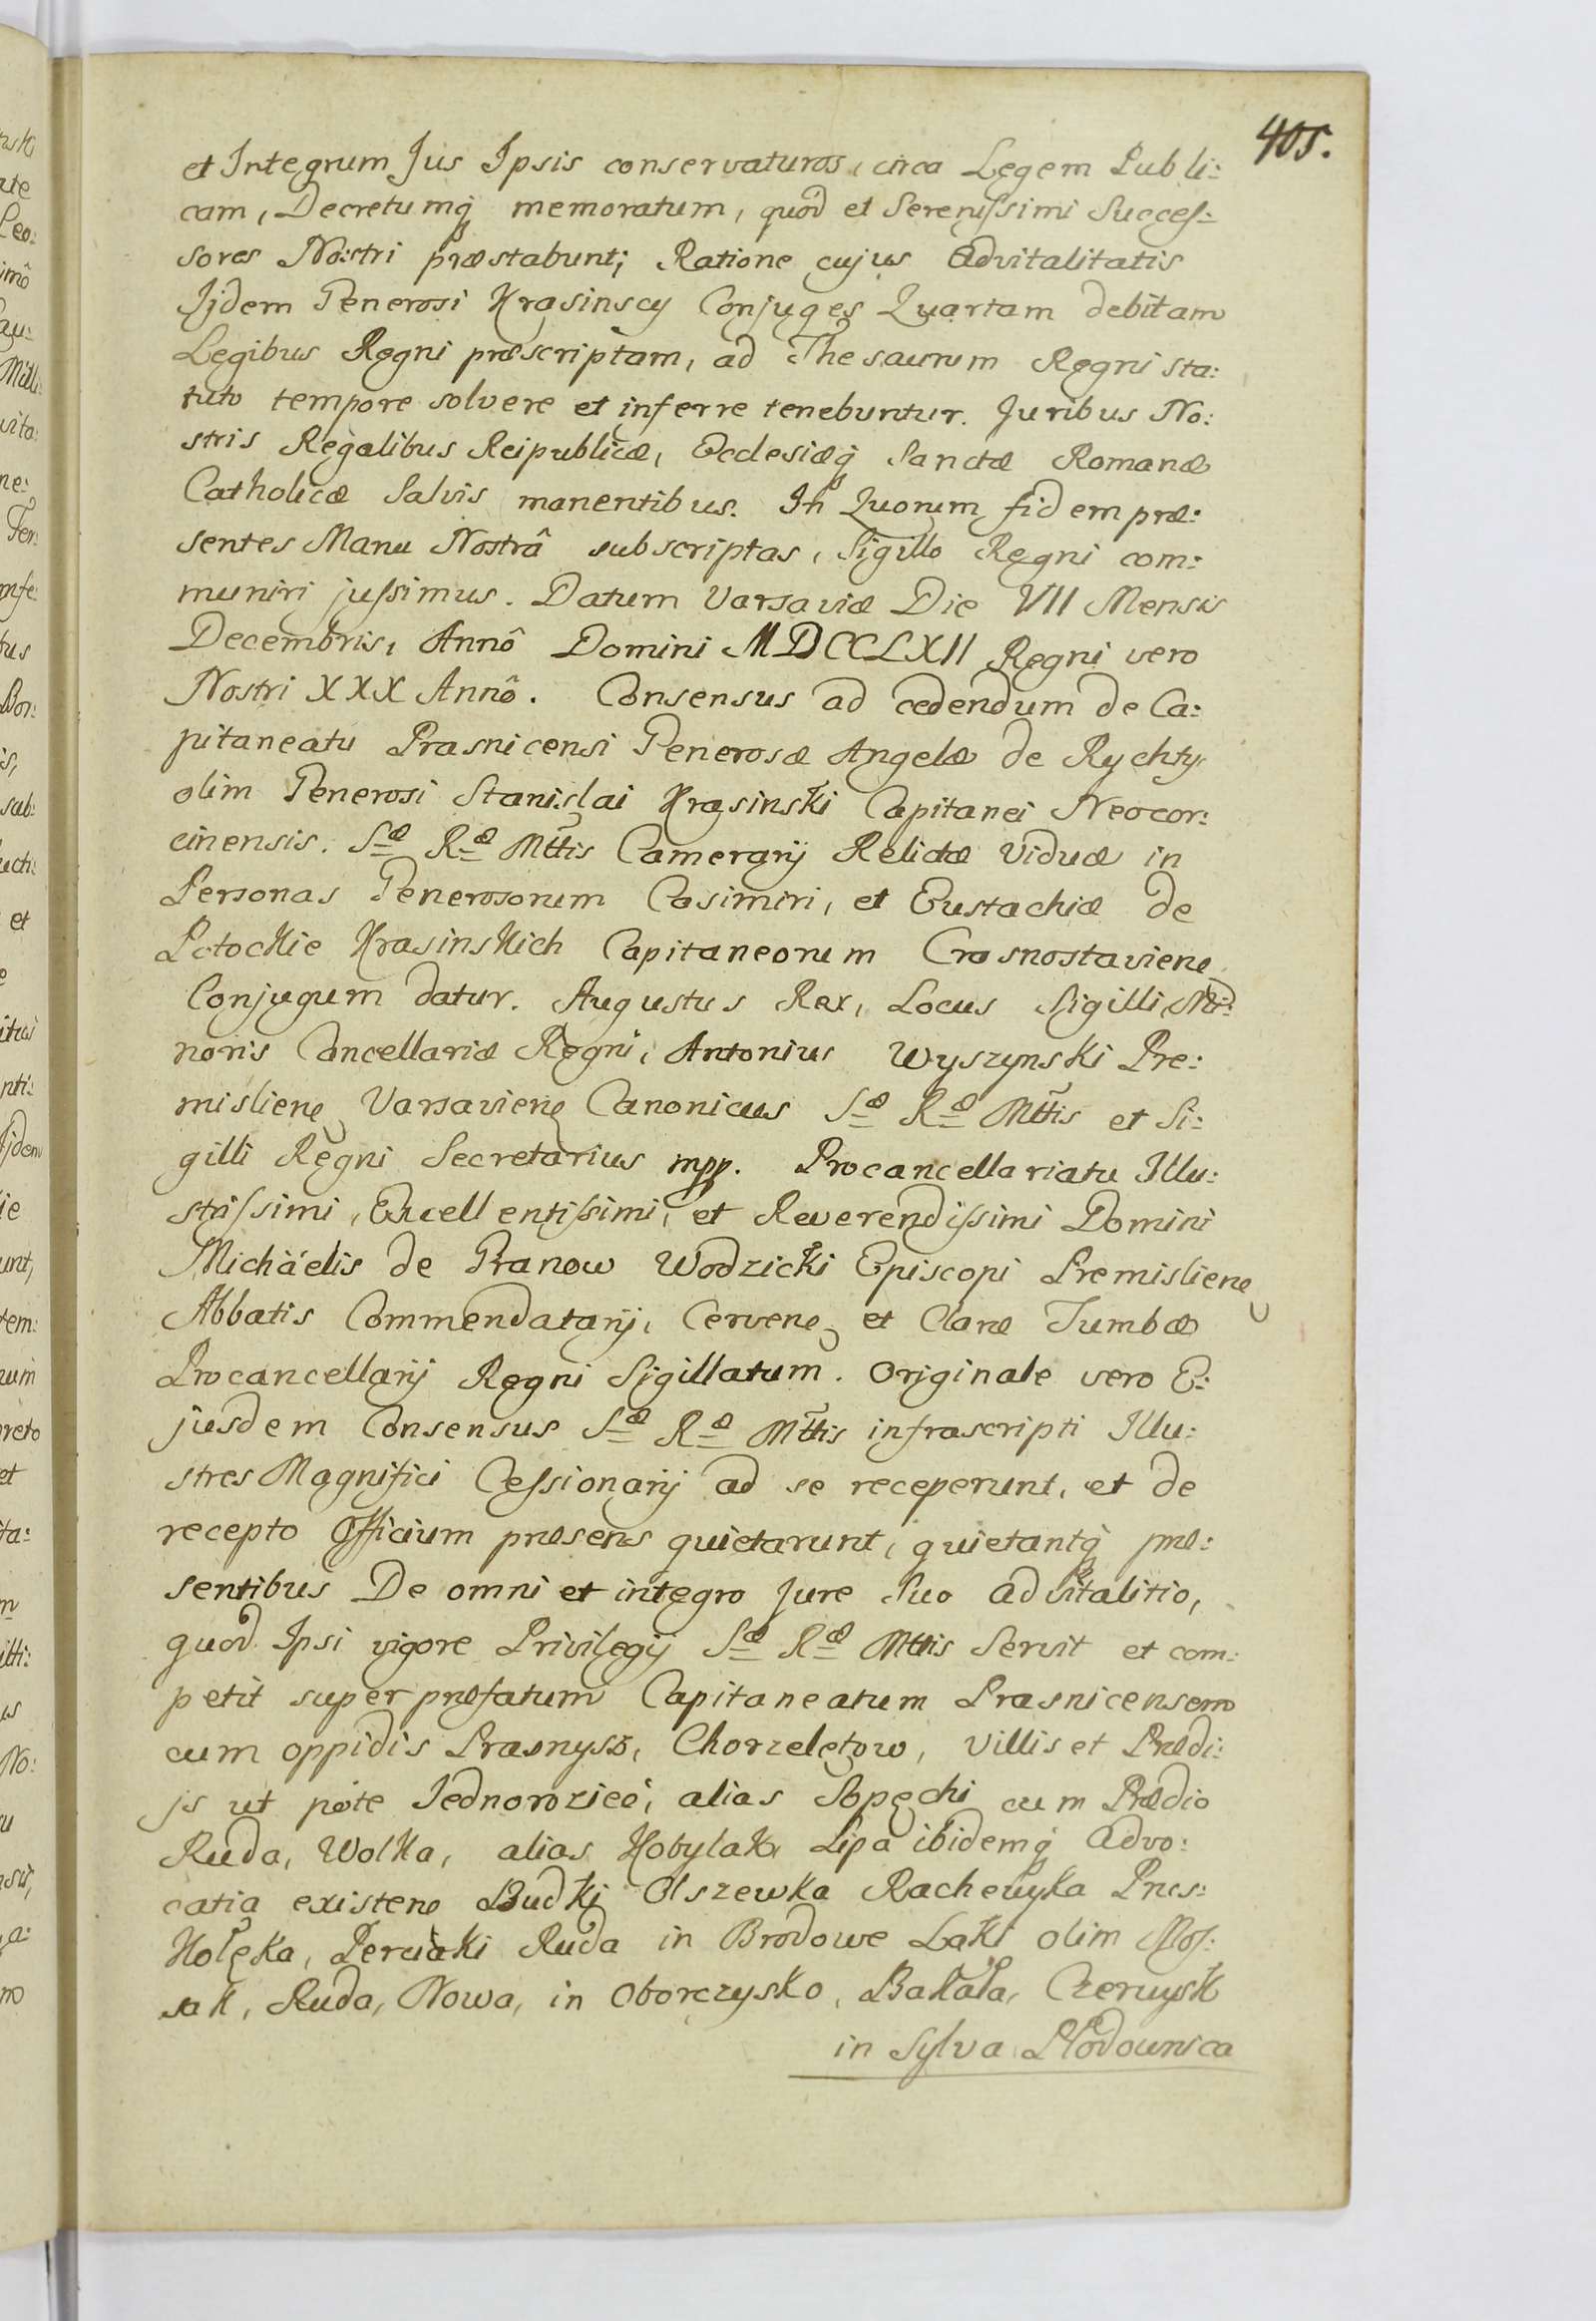 405.
et Integrum Jus Ipsis conservaturos, circa Legem Publi:
cam, Decretumq́ memoratum, quod et Serenissimi Succes:
sores Nostri præstabunt; Ratione cujus Advitalitatis
Jidem Generosi Krasinscy Conjuges Quartam debitam
Legibus Regni præscriptam, ad Thesaurum Regni sta:
tuto tempore solvere et inferre tenebuntur. Juribus No:
stris Regalibus Reipublicæ, Ecclesiæq́ Sanctæ Romanæ
Catholicæ Salvis manentibus. In Quorum fidem præ:
sentes Manu Nostrâ subscriptas, Sigillo Regni com:
muniri jussimus. Datum Varsaviæ Die VII Mensis
Decembris, Annô Domini MDCCLXII Regni vero
Nostri XXX Annô. Consensus ad cedendum de Ca:
pitaneatu Prasnicensi Generosæ Angelæ de Rychty
olim Generosi Stanislai Krasinski Capitanei Neocor:
cinensis. Sæ Ræ Mttis Camerarij Relictæ Viduæ in
Personas Generosorum Casimiri, et Eustachiæ de
Potockie Krasinskich Capitaneorum Crasnostaviene
Conjugum datur. Augustus Rex, Locus Sigilli Mi:
noris Cancellariæ Regni, Antonius Wyszynski Pre:
misliene Varsaviene Canonicus Sæ Ræ Mttis et Si:
gilli Regni Secretarius mpp. Procancellariatu Illu:
strissimi, Excellentissimi, et Reverendissimi Domini
Michaëlis de Granow Wodzicki Episcopi Premisliene
Abbatis Commendatarij, Cervene et Claræ Tumbæ
Procancellarij Regni Sigillatum. Originale vero E:
jusdem Consensus Sæ Ræ Mttis infrascripti Illu:
stres Magnifici Cessionarij ad se receperunt, et de
recepto Officium præsens quietarunt, quietantq́ præ:
sentibus De omni et integro Jure Suo advitalitio,
quod Ipsi vigore Privilegij Sæ Ræ Mttis Servit et com:
petit super præfatum Capitaneatum Prasnicensem
cum oppidis Prasnysz, Chorzeletow, Villis et Prædi:
js ut pote Jednorozice, alias Sopęchi cum Prædio
Ruda, Wolka, alias Kobylak, Lipa ibidemq́ Advo:
catia existene Budki Olszewka Rachewyka Pres:
Kolęka, Perciaki Ruda in Brodowe Laki olim Mos:
sak, Ruda, Nowa, in Oborczysko, Bakała, Czerwysk
in Sylva Płodownica